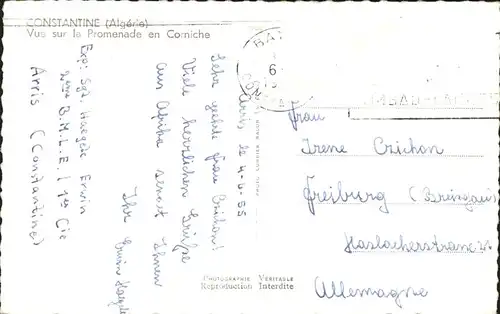 CONSTANTINE (Algérie)
Vue sur la Promenade en Corniche
Exp: Sgt. Haegele Erwin
2ème B.M.L.E. / 1re Cie
Arris (Constantine)
Arris, le 4.6.55
Sehr geehrte Frau Czichon!
Viele herzlichen Grüße
aus Afrika senst Ihnen
Ihr Erwin Haegele
PHOTOGRAPHIE VÉRITABLE
Reproduction Interdite
BAT
6
CON
Frau
Irene Czichon
Freiburg (Breisgau)
Haslacherstrasse
Allemagne